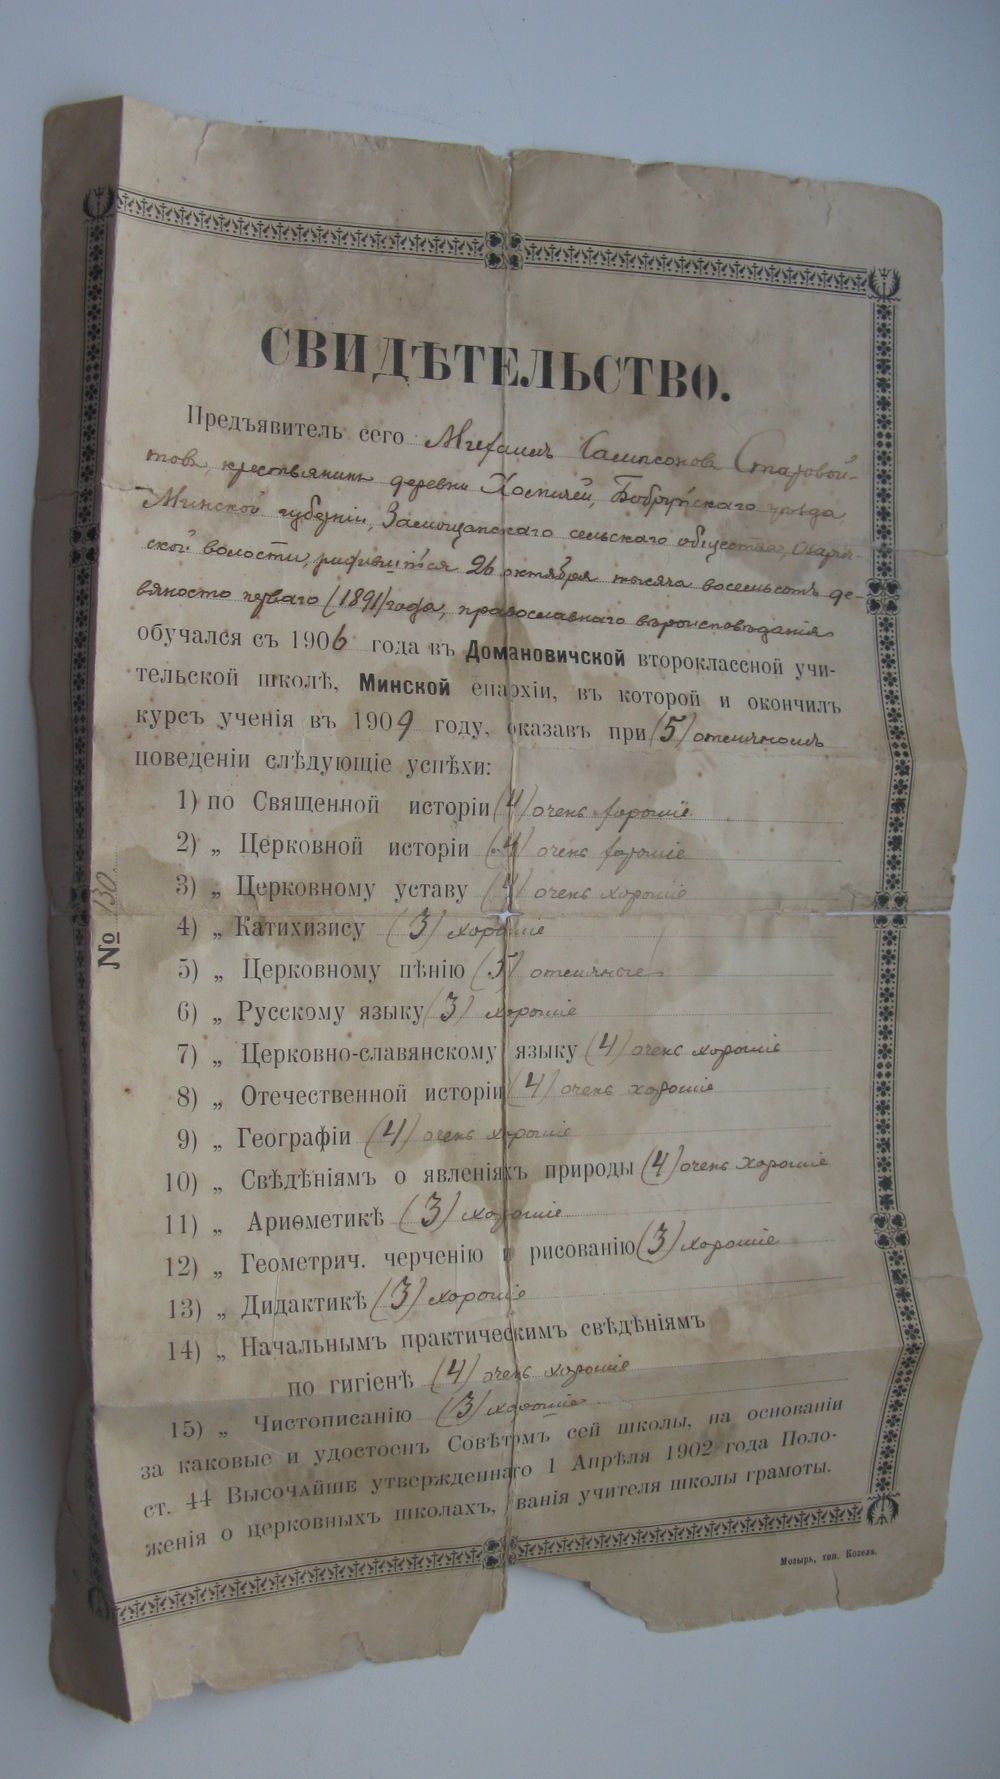 СВИДѢТЕЛЬСТВО.
Предъявитель сего Михаилъ Сампсоновъ Старовой-
товъ, крестьянинъ деревни Хоспичей, Бобруйскаго уѣзда,
Минской губерніи, сельскаго общества,
ской волости, родившійся 26 октября тысяча восемьсотъ де-
вяносто перваго (1891) года, православнаго вѣроисповѣданія
обучался съ 1906 года въ Домановичской второклассной учи-
тельской школѣ, Минской епархіи, въ которой и окончилъ
курсъ ученія въ 1909 году, оказавъ при (5) отличномъ
поведеніи слѣдующіе успѣхи:
1) по Священной исторіи (4) очень хорошіе
2) „ Церковной исторіи (4) очень хорошіе
3) „ Церковному уставу (4) очень хорошіе
4) „ Катихизису (3) хорошіе
5) „ Церковному пѣнію (5) отличные
6) „ Русскому языку (3) хорошіе
7) „ Церковно-славянскому языку (4) очень хорошіе
8) „ Отечественной исторіи (4) очень хорошіе
9) „ Географіи (4) очень хорошіе
10) „ Свѣдѣніямъ о явленіяхъ природы (4) очень хорошіе
11) „ Ариѳметикѣ (3) хорошіе
12) „ Геометрич. черченію и рисованію (3) хорошіе
13) „ Дидактикѣ (3) хорошіе
14) „ Начальнымъ практическимъ свѣдѣніямъ
по гигіенѣ (4) очень хорошіе
15) „ Чистописанію (3) хорошіе
за каковые и удостоенъ Совѣтомъ сей школы, на основаніи
ст. 44 Высочайше утвержденнаго 1 Апрѣля 1902 года Поло-
женія о церковныхъ школахъ, званія учителя школы грамоты.
Мозырь, тип. Когела.
№ 130